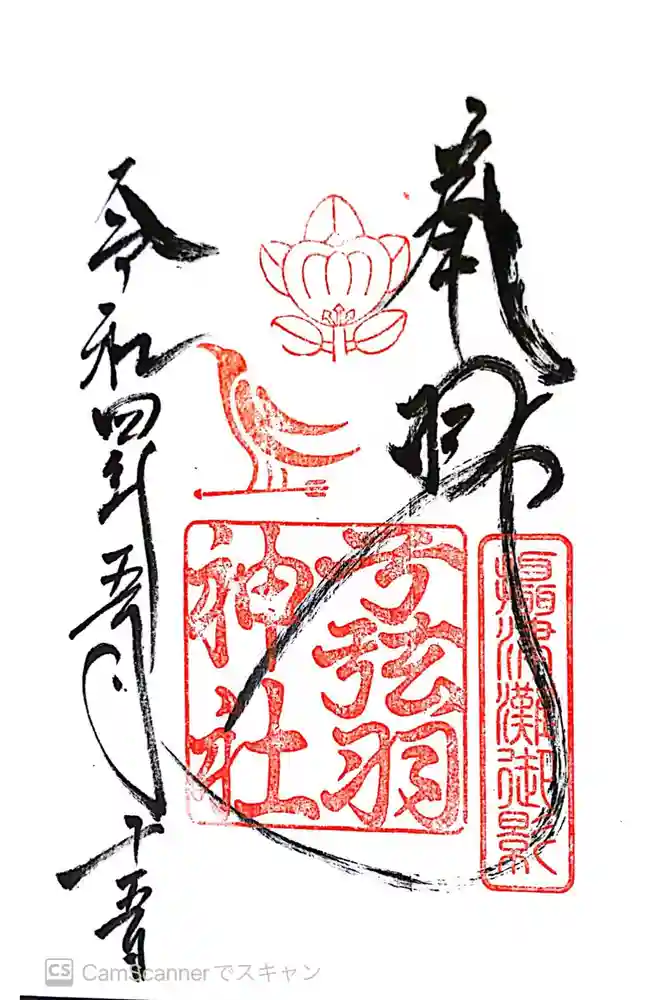 奉拝
摂津灘御影
弓弦羽
神社
令和四年五月十五日
CS CamScannerでスキャン